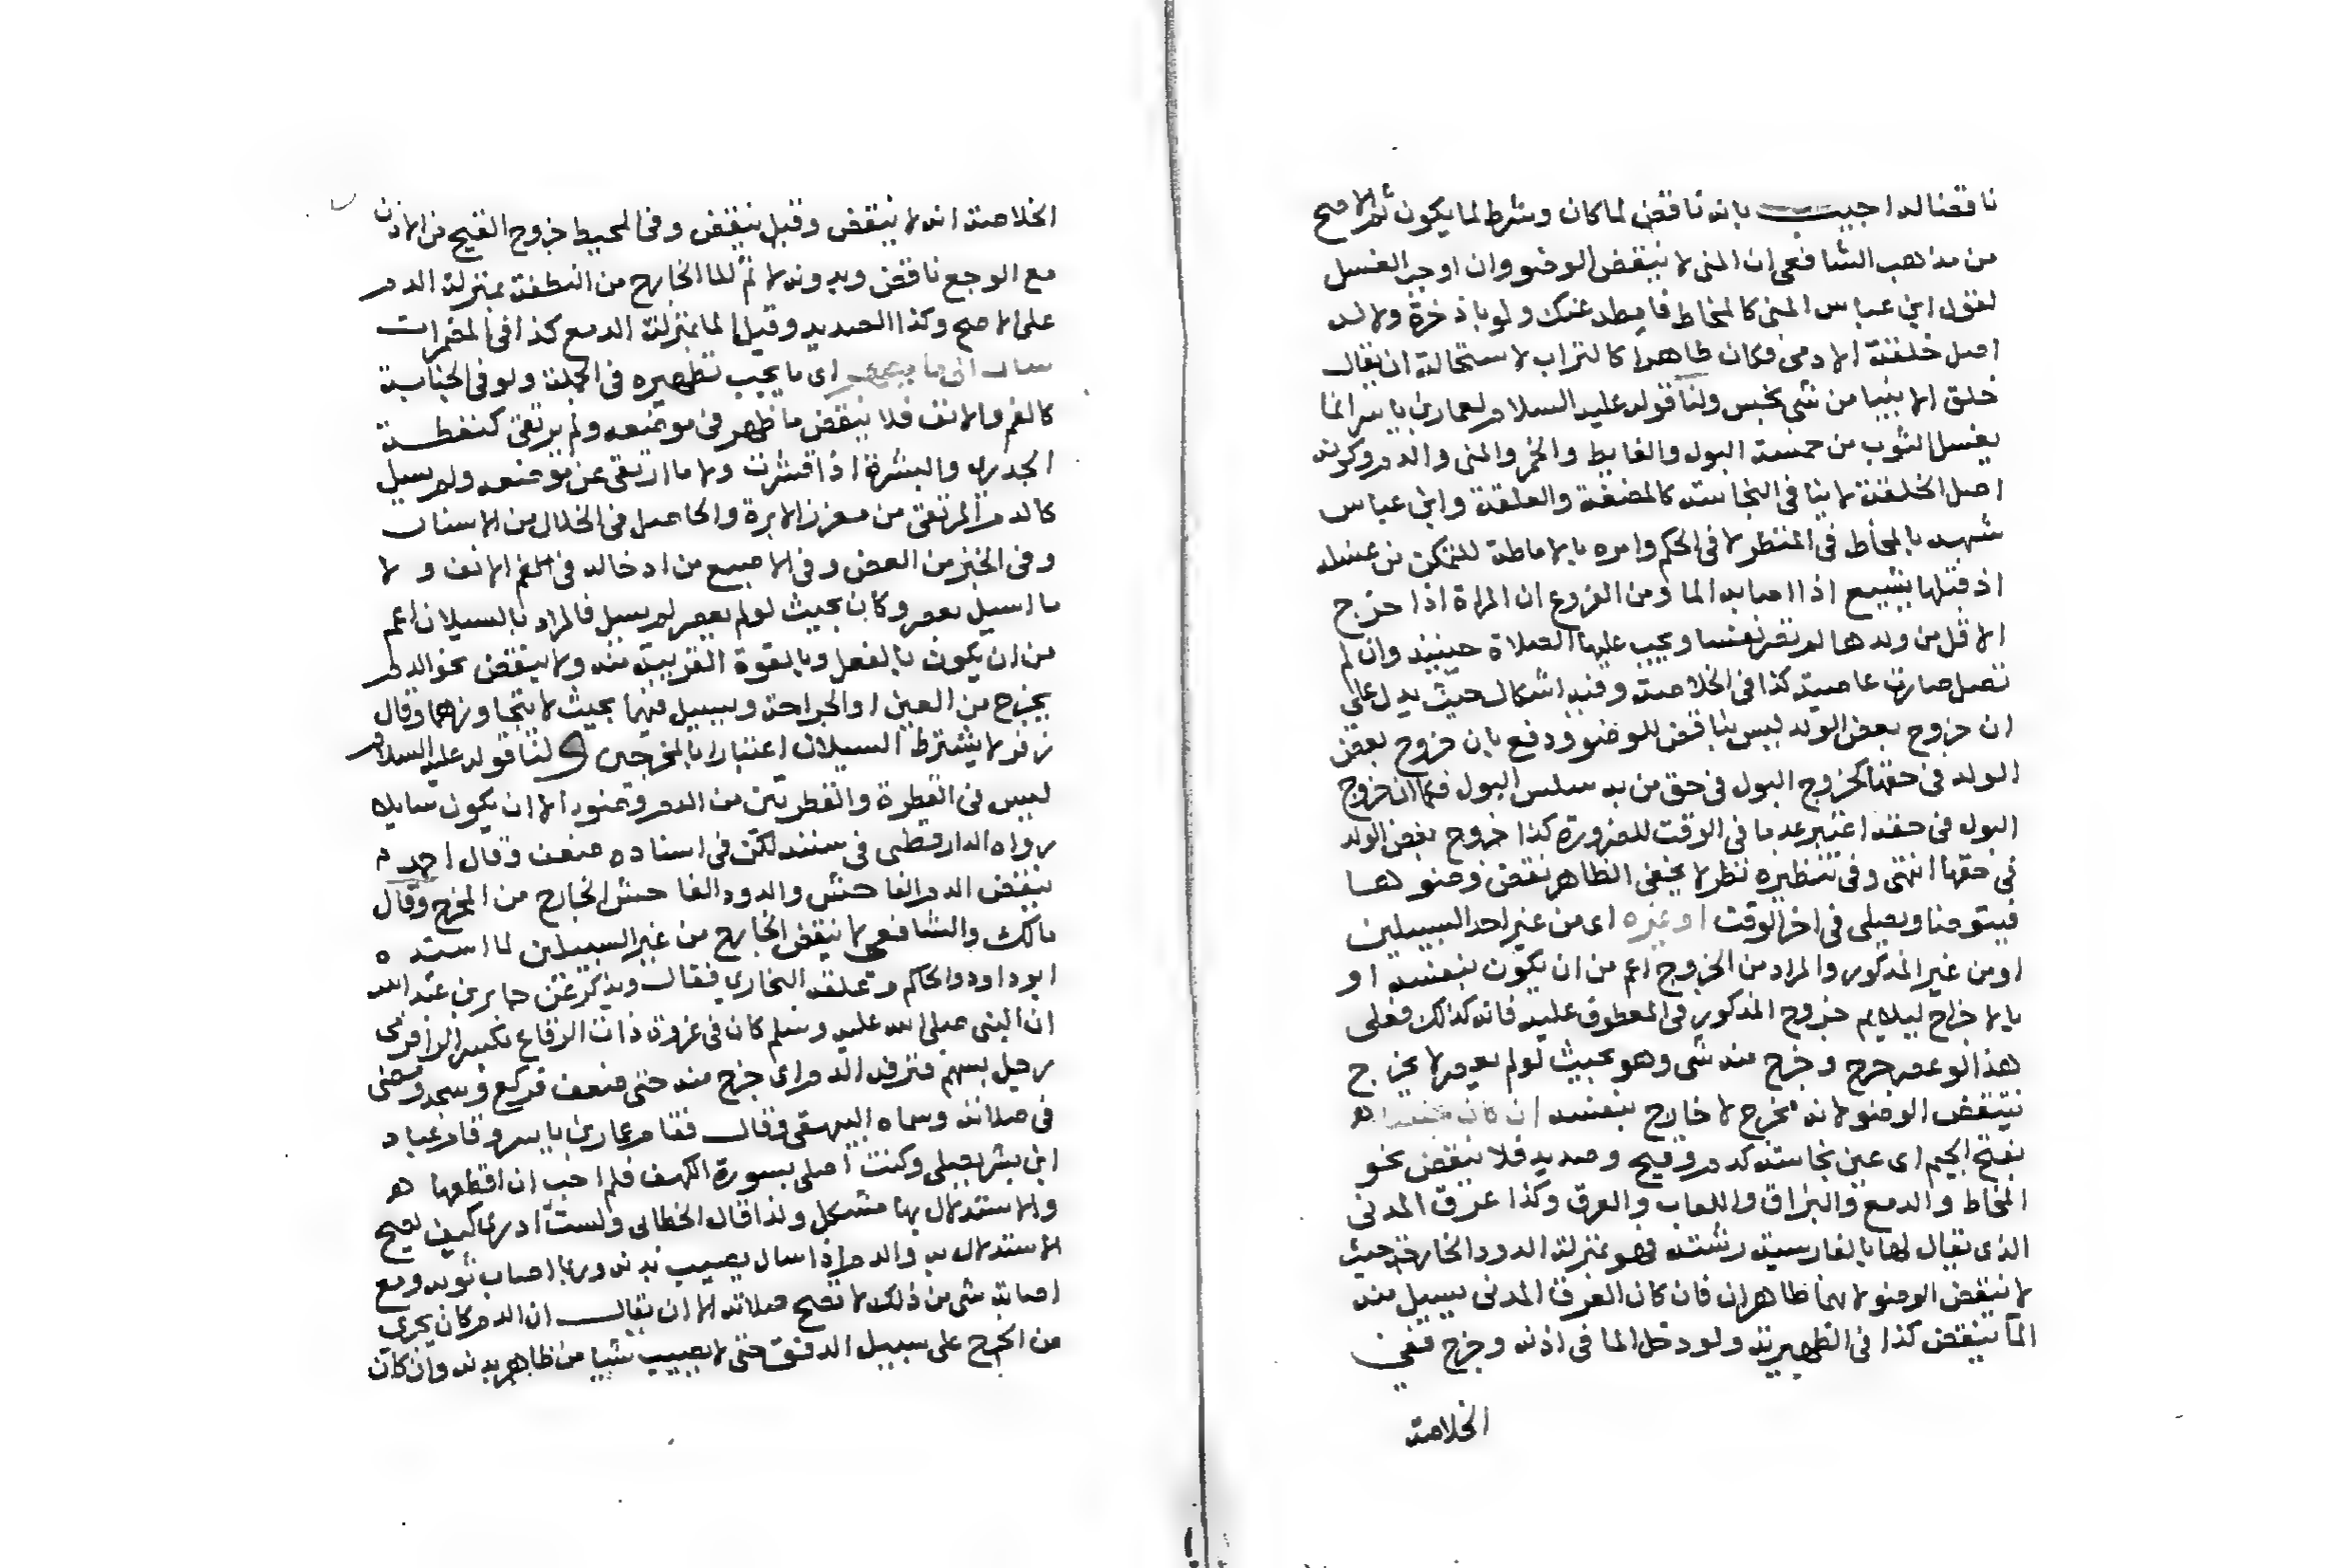 ناقضا له اجيب بانه ناقض لما كان وشرط لما يكون ثم الاصح
من مذهب الشافعي ان المني لا ينقض الوضو وان اوجب الغسل
لقول ابن عباس المني كالمخاط فامطه عنك ولو باذخرة ولانه
اصل خلقة الادمي فكان طاهرا كالتراب لاستحالة ان يقال
خلق الانبيا من شي نجس ولنا قوله عليه السلام لعمار بن ياسر انما
يغسل الثوب من خمسة البول والغايط والخمر والمني والدم وكونه
اصل الخلقة لا ينافي النجاسة كالمضغة والعلقة وابن عباس
شبهه بالمخاط في المنظر لا في الحكم وامره بالاماطة للتمكن من غسله
اذ قبلها يشيع اذا اصابه الما ومن الفروع ان المراة اذا خرج
الاقل من ولدها لم تصر نفسا ويجب عليها الصلاة حينيذ وان لم
تصل صارت عاصية كذا في الخلاصة وفيه اشكال حيث يدل على
ان خروج بعض الولد ليس بناقض للوضو ودفع بان خروج بعض
الولد في حقها كخروج البول في حق من به سلس البول فكما ان خروج
البول في حقه اعتبر عدما في الوقت للضرورة كذا خروج بعض الولد
في حقها انتهى وفي تنظيره نظر لا يخفى الظاهر نقض وضوها
فيتوضا ويصلي في اخر الوقت او غيره اي من غير احد السبيلين
او من غير المذكور والمراد من الخروج اعم من ان يكون بنفسه او
بالاخراج ليلايم خروج المذكور في المعطوف عليه فانه كذالك فعلى
هذا لو عصر جرح وخرج منه شي وهو بحيث لو لم يعصر لا يخرج
ينتقض الوضو لانه مخرج لا خارج بنفسه ان كان نجسا هو
بفتح الجيم اي عين نجاسته كدم وقيح وصديد فلا ينقض نحو
المخاط والدمع والبزاق واللعاب والعرق وكذا عرق المدني
الذي يقال لها بالفارسية رشته فهو بمنزلة الدود الخارج حيث
لا ينقض الوضو لانهما طاهران فان كان العرق المدني يسيل منه
الما ينقض كذا في الظهيرية ولو دخل الما في اذنه وخرج ففي
الخلاصة
الخلاصة انه لا ينقض وقيل ينقض وفي المحيط خروج القيح من الاذن
مع الوجع ناقض وبدونه لا ثم للما الخارج من النطفة بمنزلة الدم
على الاصح وكذا الصديد وقيل لما بمنزلة الدمع كذا في المضمرات
سال الى ما يطهر اي ما يجب تطهيره في الجملة ولو في الجنابة
كالفم والانف فلا ينقض ما ظهر في موضعه ولم يرتقي كنفطة
الجدري والبشرة اذا قشرت ولا ما ارتقى عن موضعه ولم يسيل
كالدم المرتقى من مغرز الابرة والحاصل في الخلال من الاسنان
وفي الخبز من العض وفي الاصبع من ادخاله في الفم الانف ولا
ما اسيل بعصر وكان بحيث لو لم يعصر لم يسيل فالمراد بالسيلان اعم
من ان يكون بالفعل وبالقوة القريبة منه ولا ينقض نحو الدم
يخرج من العين او الجراحة ويسيل فيها بحيث لا يتجاوزهما وقال
زفر لا يشترط السيلان اعتبارا بالمخرجين ولنا قوله عليه السلام
ليس في القطرة والقطرتين من الدم وضو الا ان يكون سايلا
رواه الدارقطني في سننه لكن في اسناده ضعف وقال احمد
ينقض الدم الفاحش والدود الفاحش الخارج من المخرج وقال
مالك والشافعي لا ينقض الخارج من غير السبيلين لما اسنده
ابو داود والحاكم وعلقه البخاري فقال ويذكر عن جابر بن عبد الله
ان النبي صلى الله عليه وسلم كان في غزوة ذات الرقاع بكسر الرا فرمى
رجل بسهم فنزفه الدم اي خرج منه حتى ضعف فركع وسجد ومضى
في صلاته وسماه البيهقي وقال فقام عمار بن ياسر وقام عباد
ابن بشر يصلي وكنت اصلي بسورة الكهف فلم احب ان اقطعها هو
والاستدلال بها مشكل ولذا قال الخطابي ولست ادري كيف يصح
الاستدلال به والدم اذا سال يصيب بدنه وربما اصاب ثوبه ومع
اصابة شي من ذلك لا تصح صلاته الا ان يقال ان الدم كان يجري
من الجرح على سبيل الدفق حتى لا يصيب شيا من ظاهر بدنه وان كان